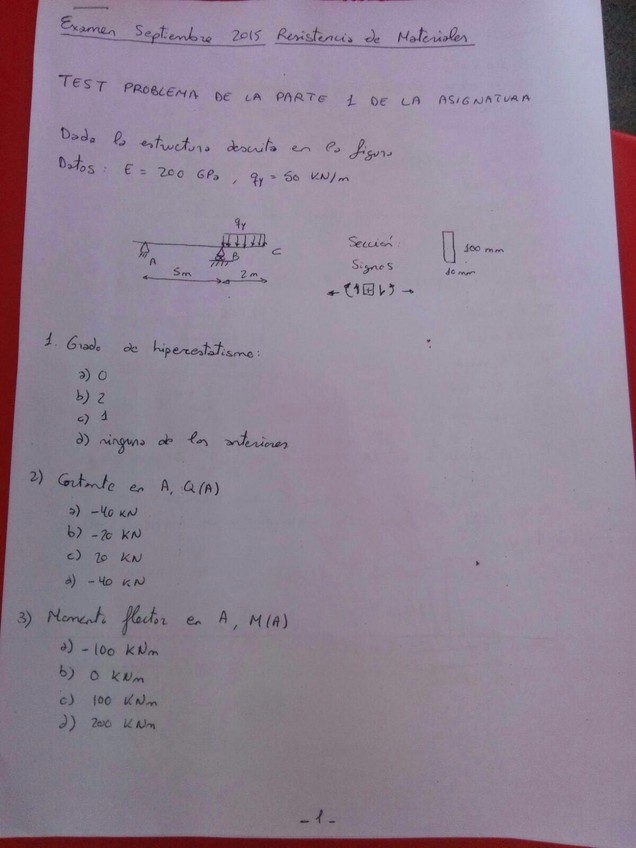 Examen Septiembre 2015 Resistencia de Materiales
TEST PROBLEMA DE LA PARTE 1 DE LA ASIGNATURA
Dada la estructura descrita en la figura
Datos: E = 200 GPa, qy = 50 KN/m
qy
A
B
C
5m
2m
Sección:
Signos
+
100 mm
10 mm
1. Grado de hiperestatismo:
a) 0
b) 2
c) 1
d) ninguna de las anteriores
2) Cortante en A, Q(A)
a) -40 KN
b) -20 KN
c) 20 KN
d) -40 KN
3) Momento flector en A, M(A)
a) -100 KNm
b) 0 KNm
c) 100 KNm
d) 200 KNm
- 1 -